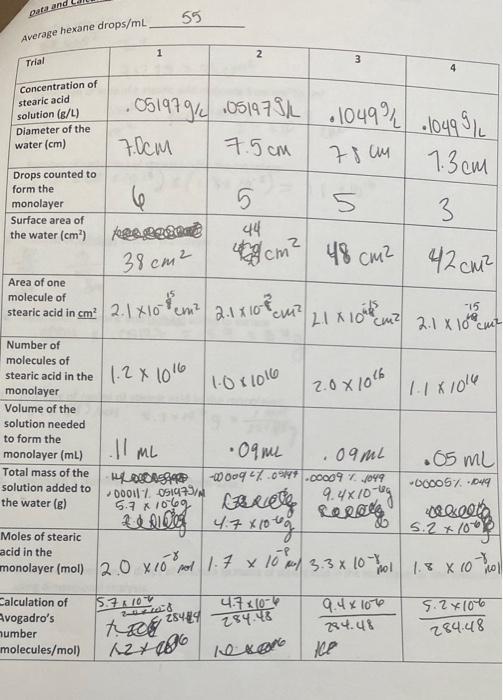 Data and
Average hexane drops/mL 55
Trial 1 2 3 4
Concentration of
stearic acid
solution (g/L) .05197 g/L .05197 g/L .1049 g/L .1049 g/L
Diameter of the
water (cm) 7.0cm 7.5 cm 7.8 cm 7.3 cm
Drops counted to
form the
monolayer 6 5 5 3
Surface area of
the water (cm²) 38 cm² 44 cm² 48 cm² 42 cm²
Area of one
molecule of
stearic acid in cm² 2.1 x10⁻¹⁵ cm² 2.1 x10 cm² 2.1 x 10⁻¹⁵ cm² 2.1 x 10⁻¹⁵ cm²
Number of
molecules of
stearic acid in the
monolayer 1.2 x 10¹⁶ 1.0 x 10¹⁶ 2.0 x 10¹⁶ 1.1 x 10¹⁶
Volume of the
solution needed
to form the
monolayer (mL) .11 mL .09mL .09mL .05 mL
Total mass of the
solution added to
the water (g) .00011 .05197 g/L .00009 .00009 .1049 .00005 .1049
5.7 x 10⁻⁶g 4.7 x10⁻⁶g 9.4x10⁻⁶g 5.2 x 10⁻⁶
Moles of stearic
acid in the
monolayer (mol) 2.0 x10⁻⁸ mol 1.7 x 10⁻⁸ mol 3.3 x 10⁻⁸ mol 1.8 x 10⁻⁸ mol
Calculation of
Avogadro's
number
molecules/mol) 5.7x10⁻⁶ 284.48 4.7x10⁻⁶ 284.48 9.4x10⁻⁶ 284.48 5.2x10⁻⁶ 284.48